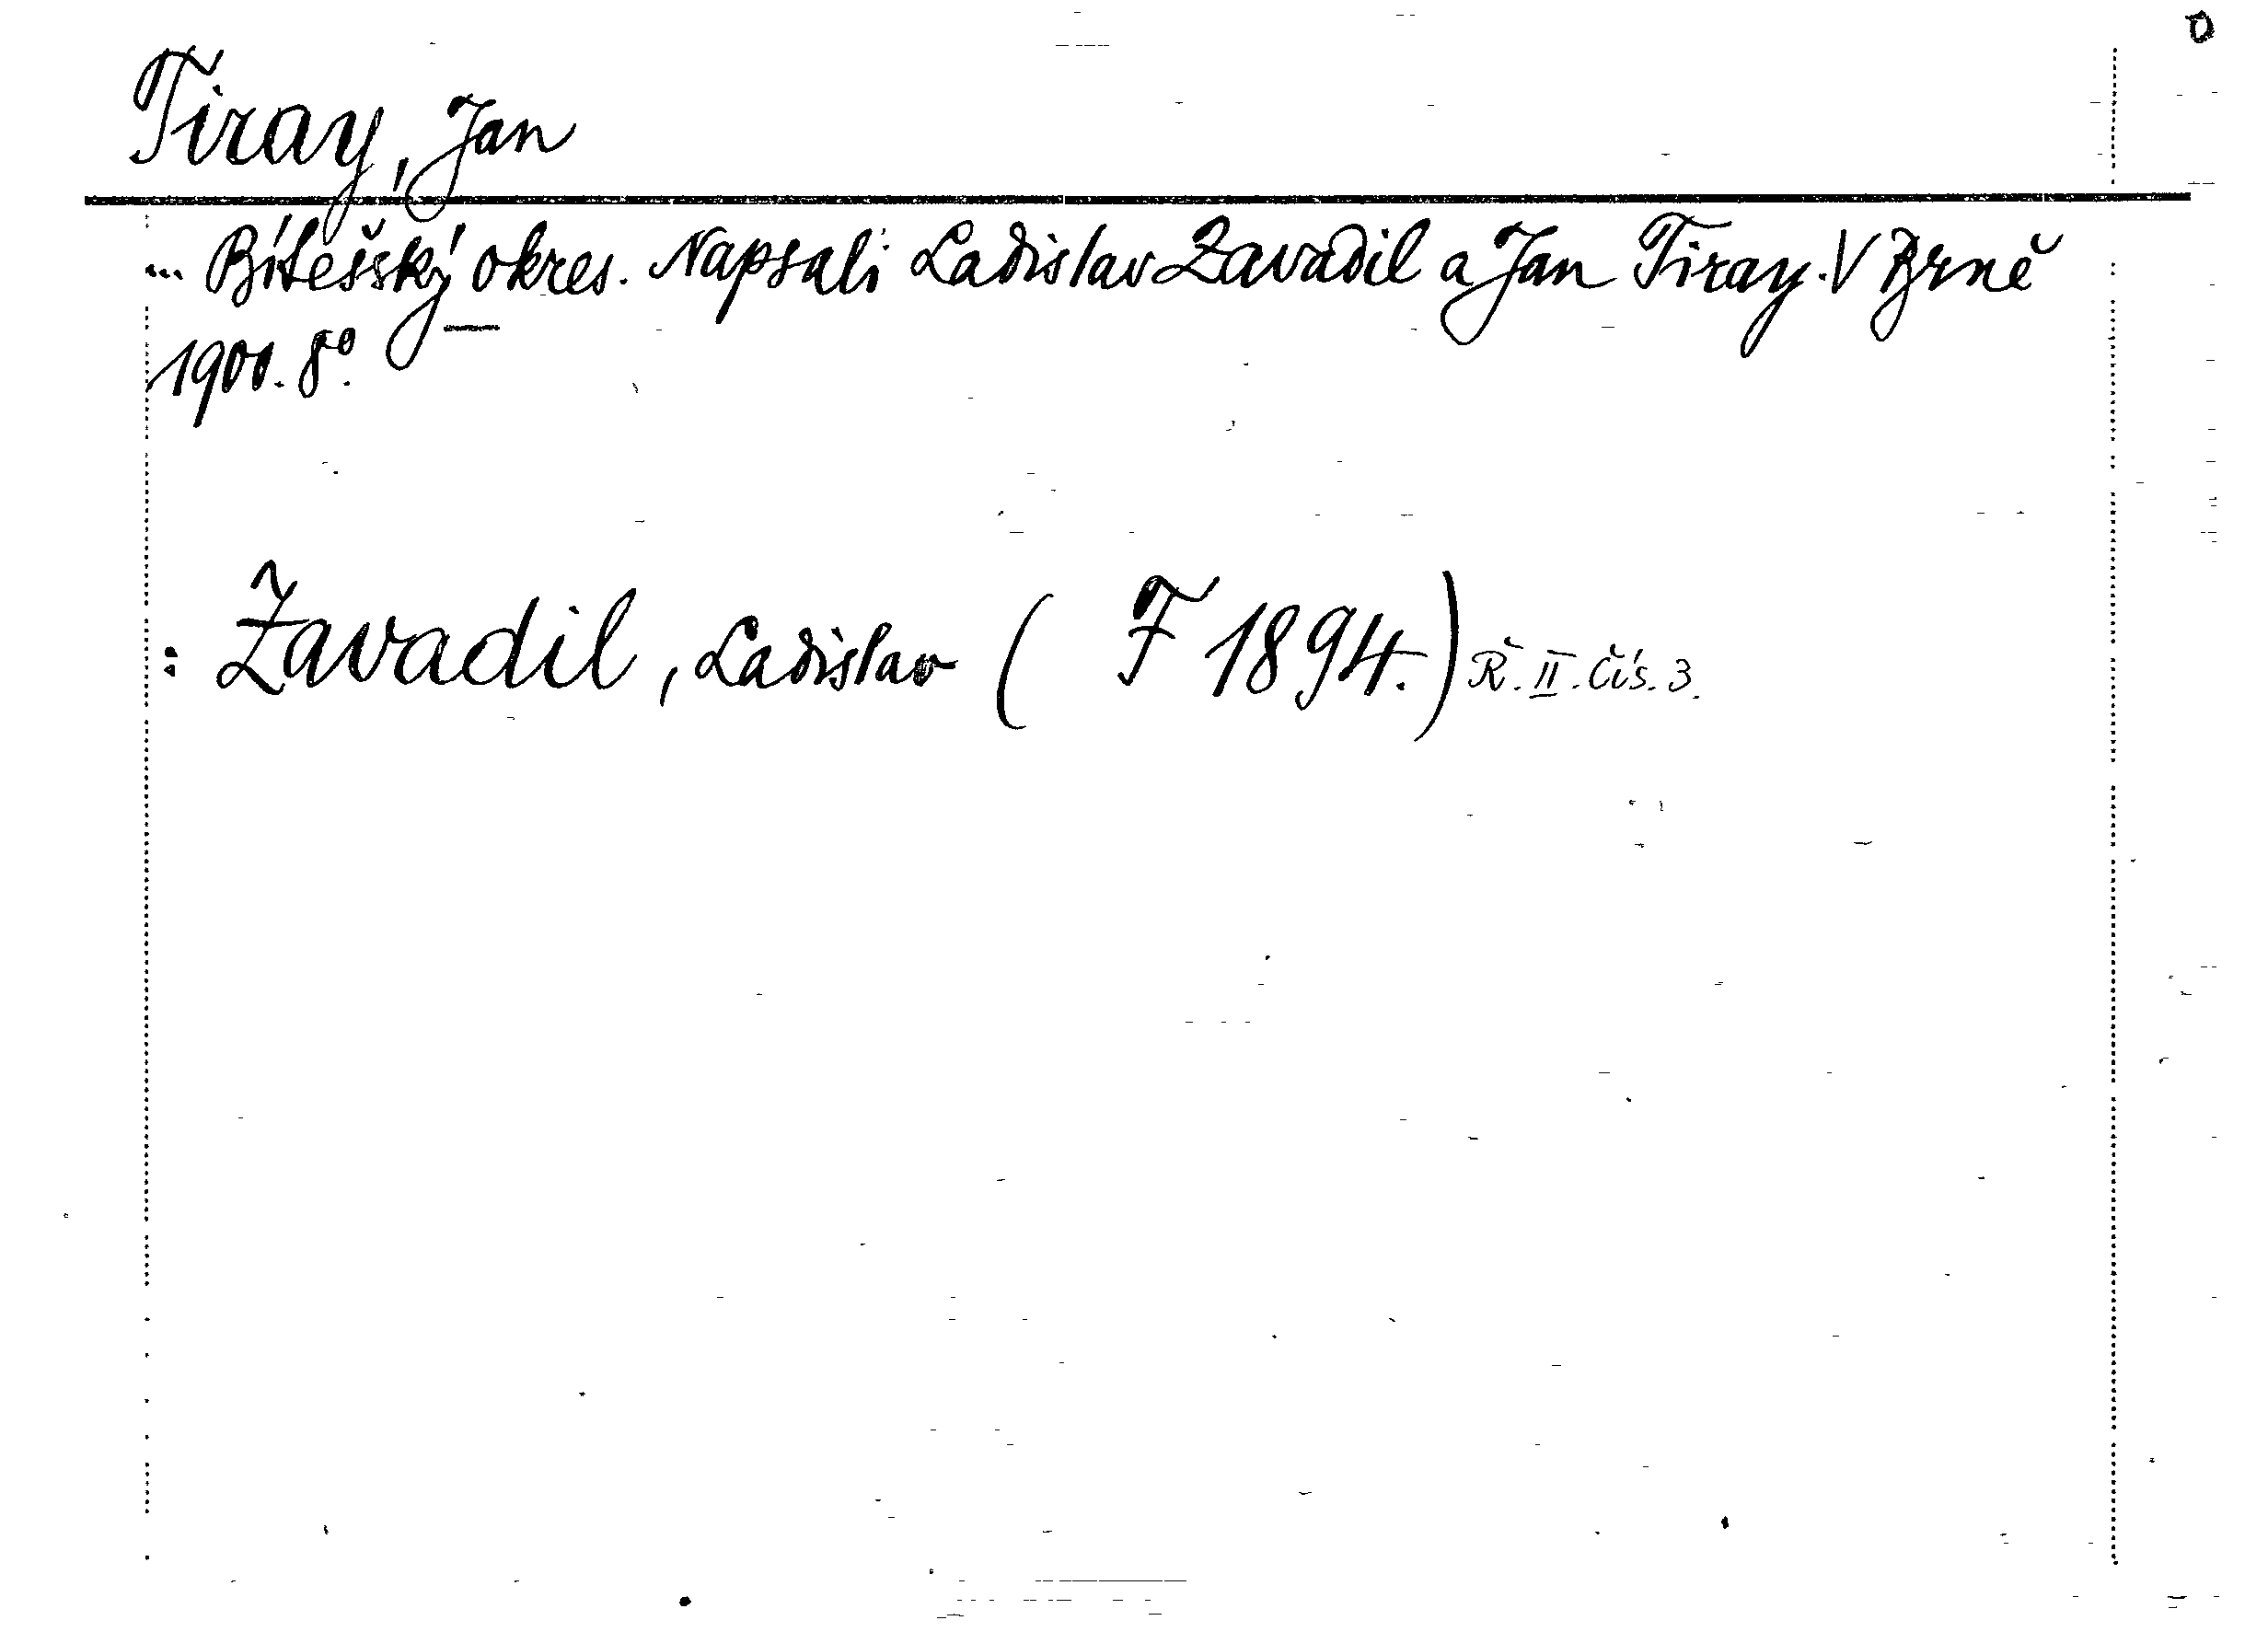 Tiray, Jan
... Bítešský okres. Napsali Ladislav Zavadil a Jan Tiray. V Brně
1900. 8°.
: Zavadil, Ladislav ( F 1894.) Ř. II. Čís. 3.